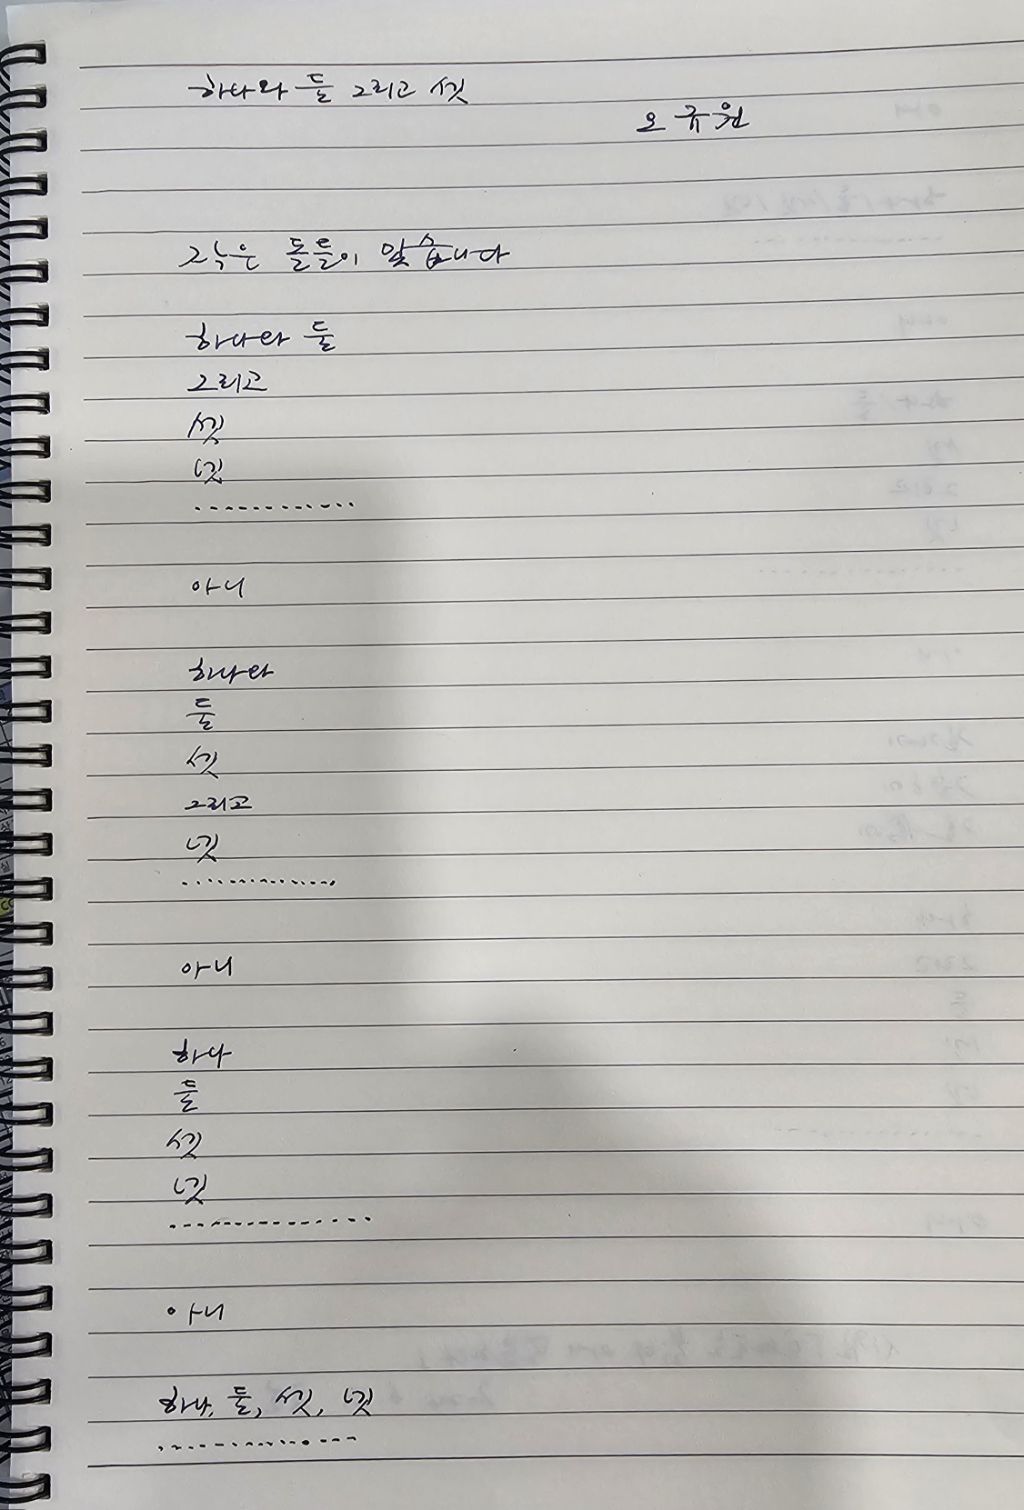 하나와 둘 그리고 셋
오규원
작은 돌들이 있습니다
하나와 둘
그리고
셋
넷
............
아니
하나와
둘
셋
그리고
넷
.............
아니
하나
둘
셋
넷
..............
아니
하나, 둘, 셋, 넷
..............